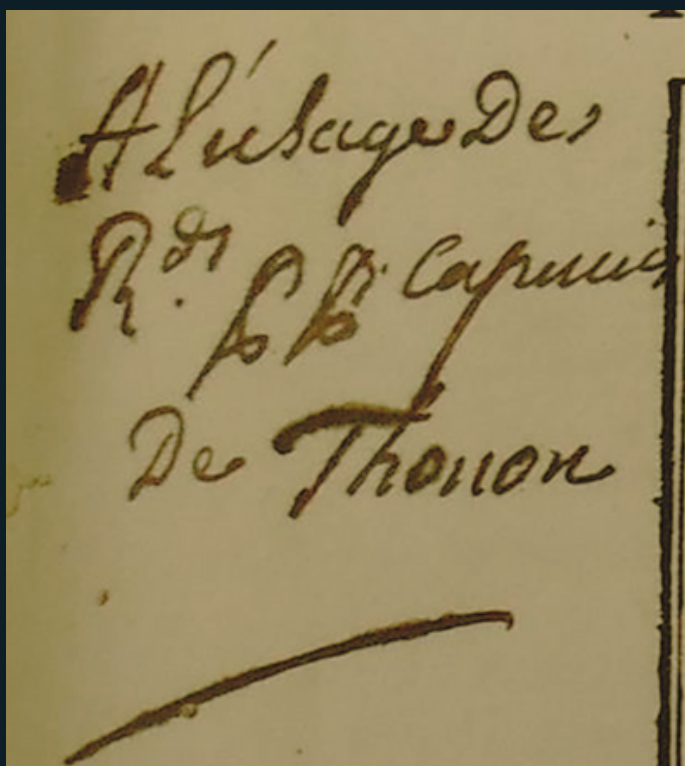 A l'usage Des
R.ds PP. Capucins
De Thonon